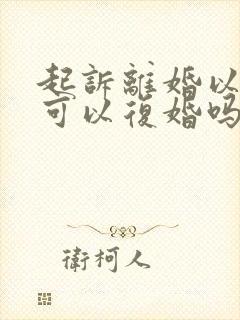 起訴離婚以
可以復婚吗
衛柯人